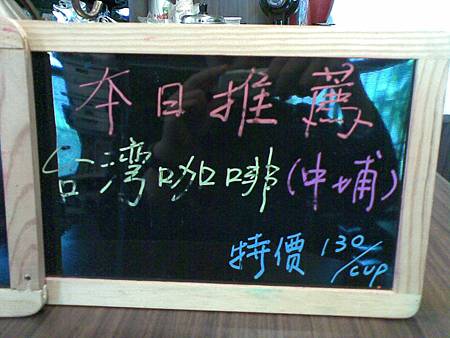 本日推薦
台湾咖啡(中埔)
特價 130/cup